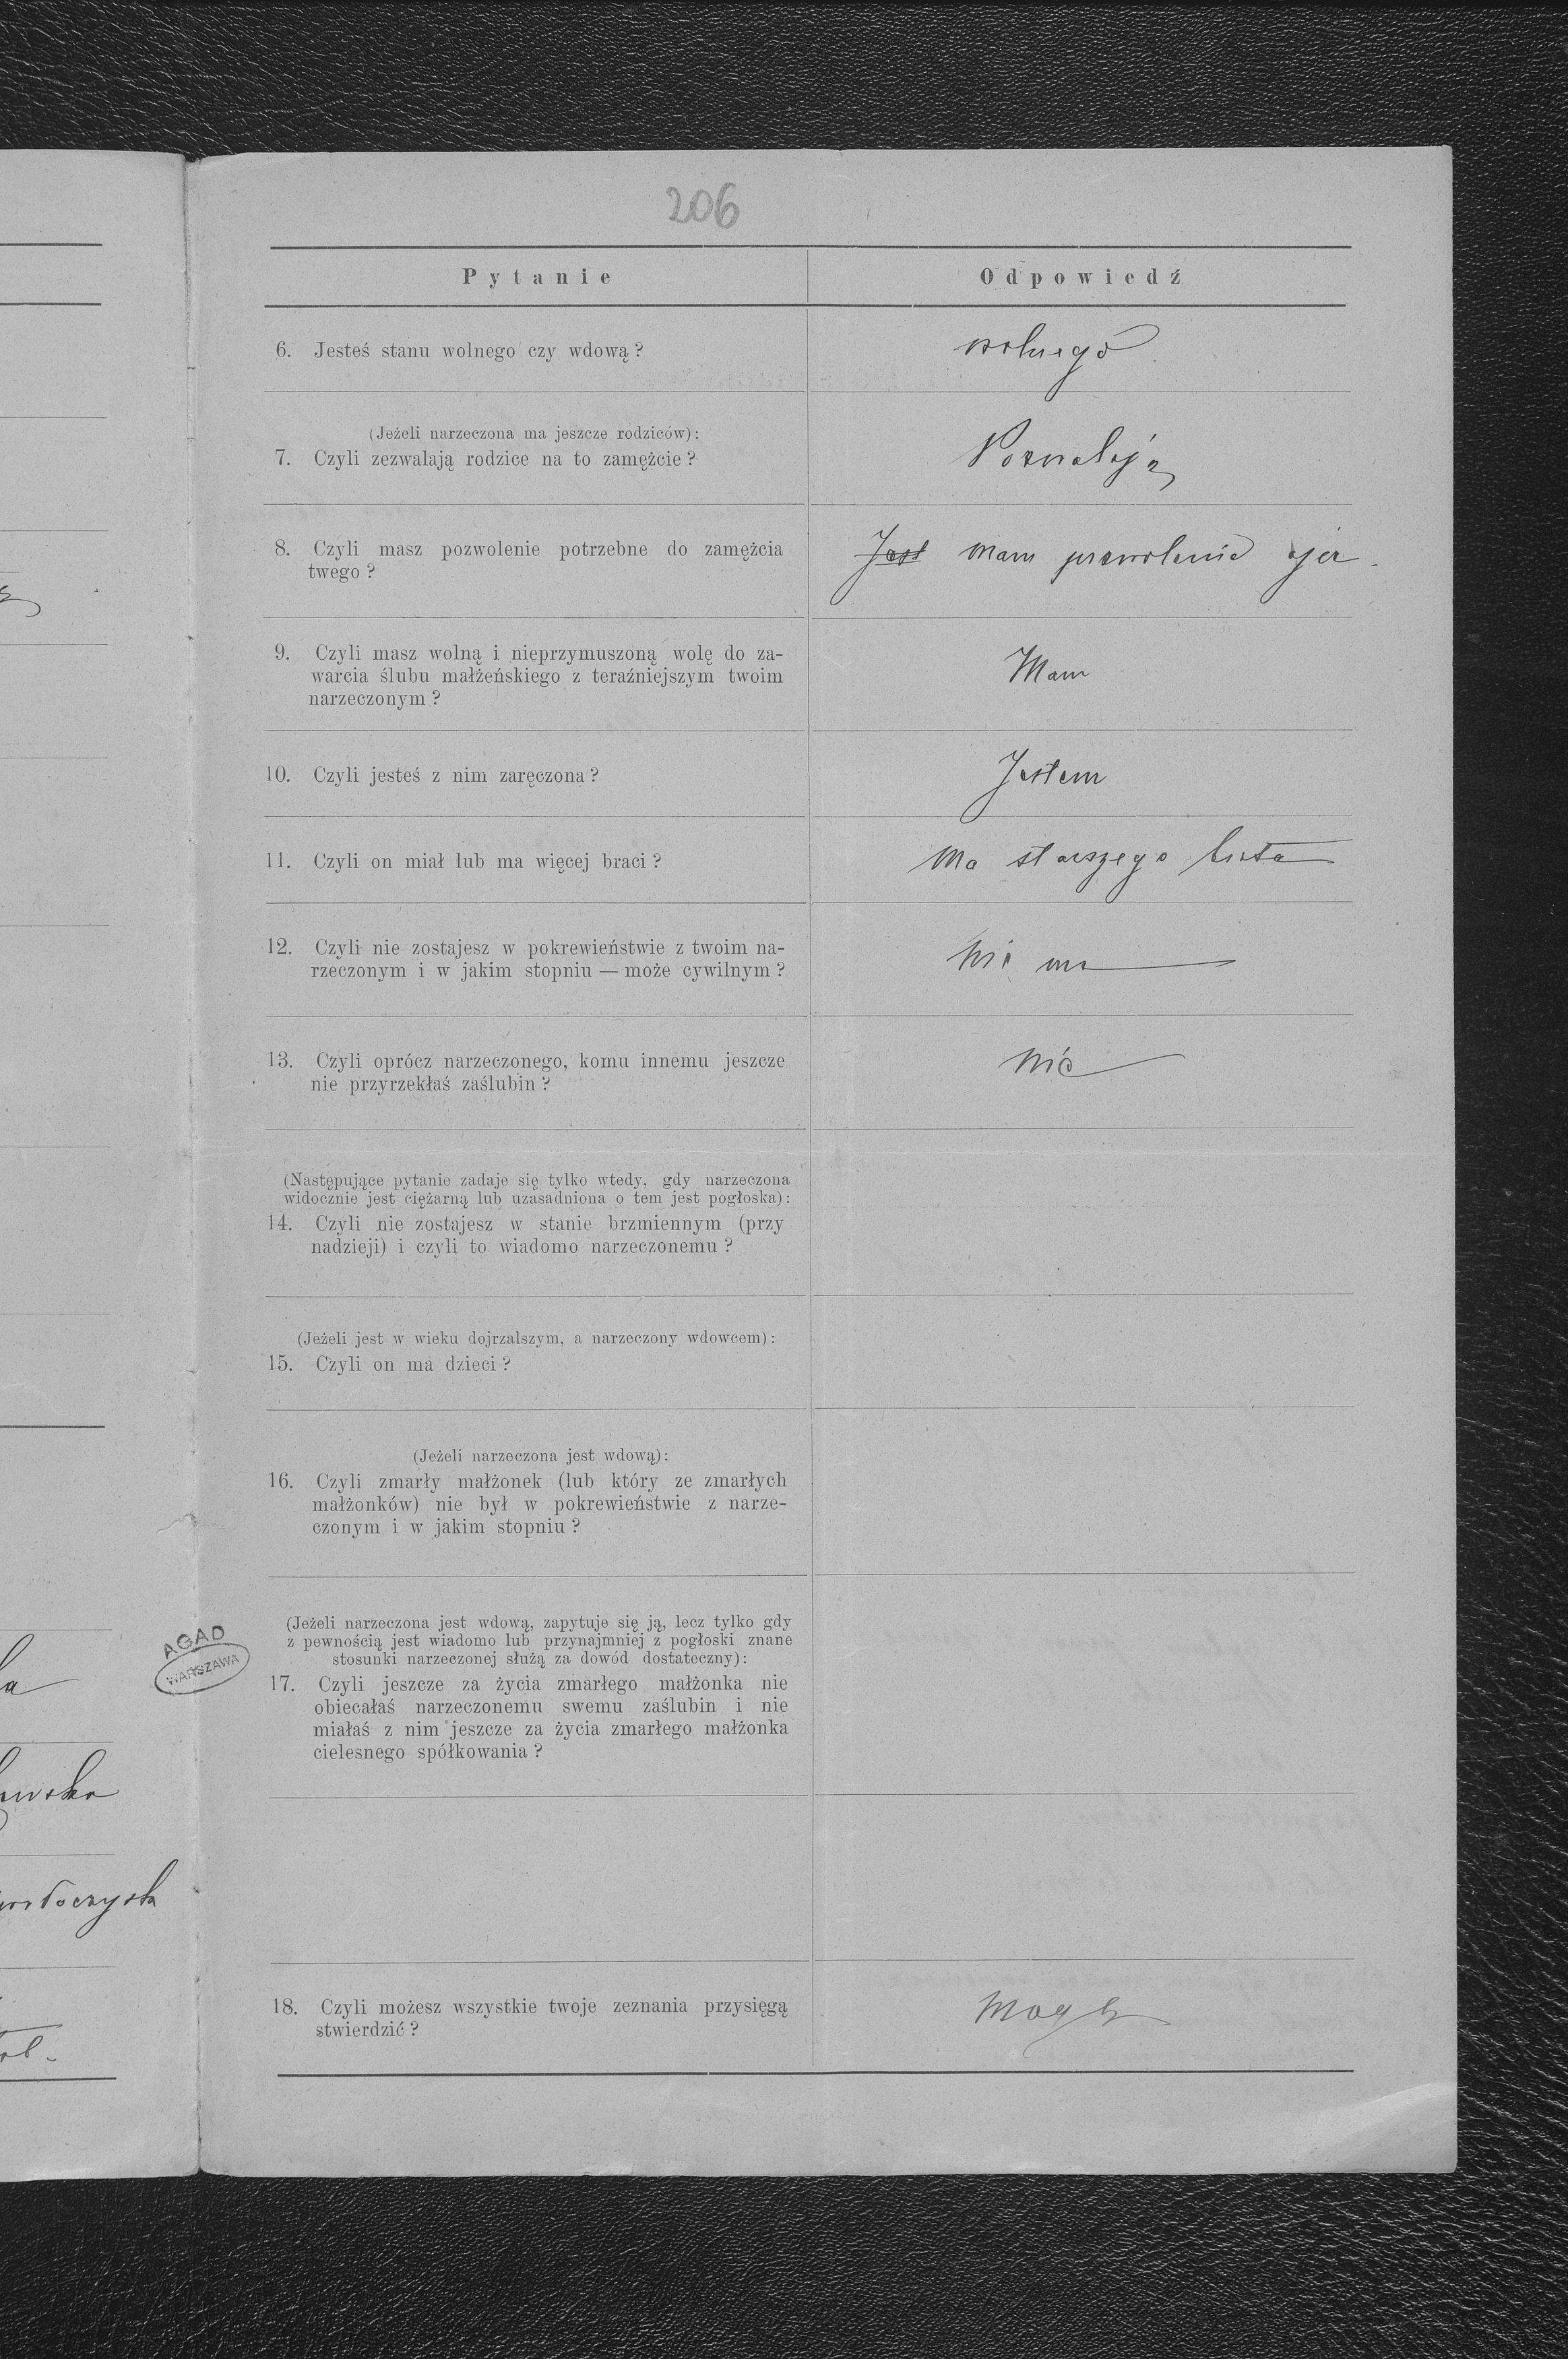 206
Pytanie Odpowiedź
6. Jesteś stanu wolnego czy wdową? wolnego
(Jeżeli narzeczona ma jeszcze rodziców):
7. Czyli zezwalają rodzice na to zamężcie? Pozwalają
8. Czyli masz pozwolenie potrzebne do zamężcia Jest mam pozwolenie ojca.
twego?
9. Czyli masz wolną i nieprzymuszoną wolę do za-
warcia ślubu małżeńskiego z teraźniejszym twoim Mam
narzeczonym?
10. Czyli jesteś z nim zaręczona? Jestem
11. Czyli on miał lub ma więcej braci? Ma starszego brata
12. Czyli nie zostajesz w pokrewieństwie z twoim na- Nie ma
rzeczonym i w jakim stopniu — może cywilnym?
13. Czyli oprócz narzeczonego, komu innemu jeszcze Nie
nie przyrzekłaś zaślubin?
(Następujące pytanie zadaje się tylko wtedy, gdy narzeczona
widocznie jest ciężarną lub uzasadniona o tem jest pogłoska):
14. Czyli nie zostajesz w stanie brzmiennym (przy
nadzieji) i czyli to wiadomo narzeczonemu?
(Jeżeli jest w wieku dojrzalszym, a narzeczony wdowcem):
15. Czyli on ma dzieci?
(Jeżeli narzeczona jest wdową):
16. Czyli zmarły małżonek (lub który ze zmarłych
małżonków) nie był w pokrewieństwie z narze-
czonym i w jakim stopniu?
(Jeżeli narzeczona jest wdową, zapytuje się ją, lecz tylko gdy
z pewnością jest wiadomo lub przynajmniej z pogłoski znane
stosunki narzeczonej służą za dowód dostateczny):
17. Czyli jeszcze za życia zmarłego małżonka nie
obiecałaś narzeczonemu swemu zaślubin i nie
miałaś z nim jeszcze za życia zmarłego małżonka
cielesnego spółkowania?
18. Czyli możesz wszystkie twoje zeznania przysięgą Mogę
stwierdzić?
AGAD
WARSZAWA